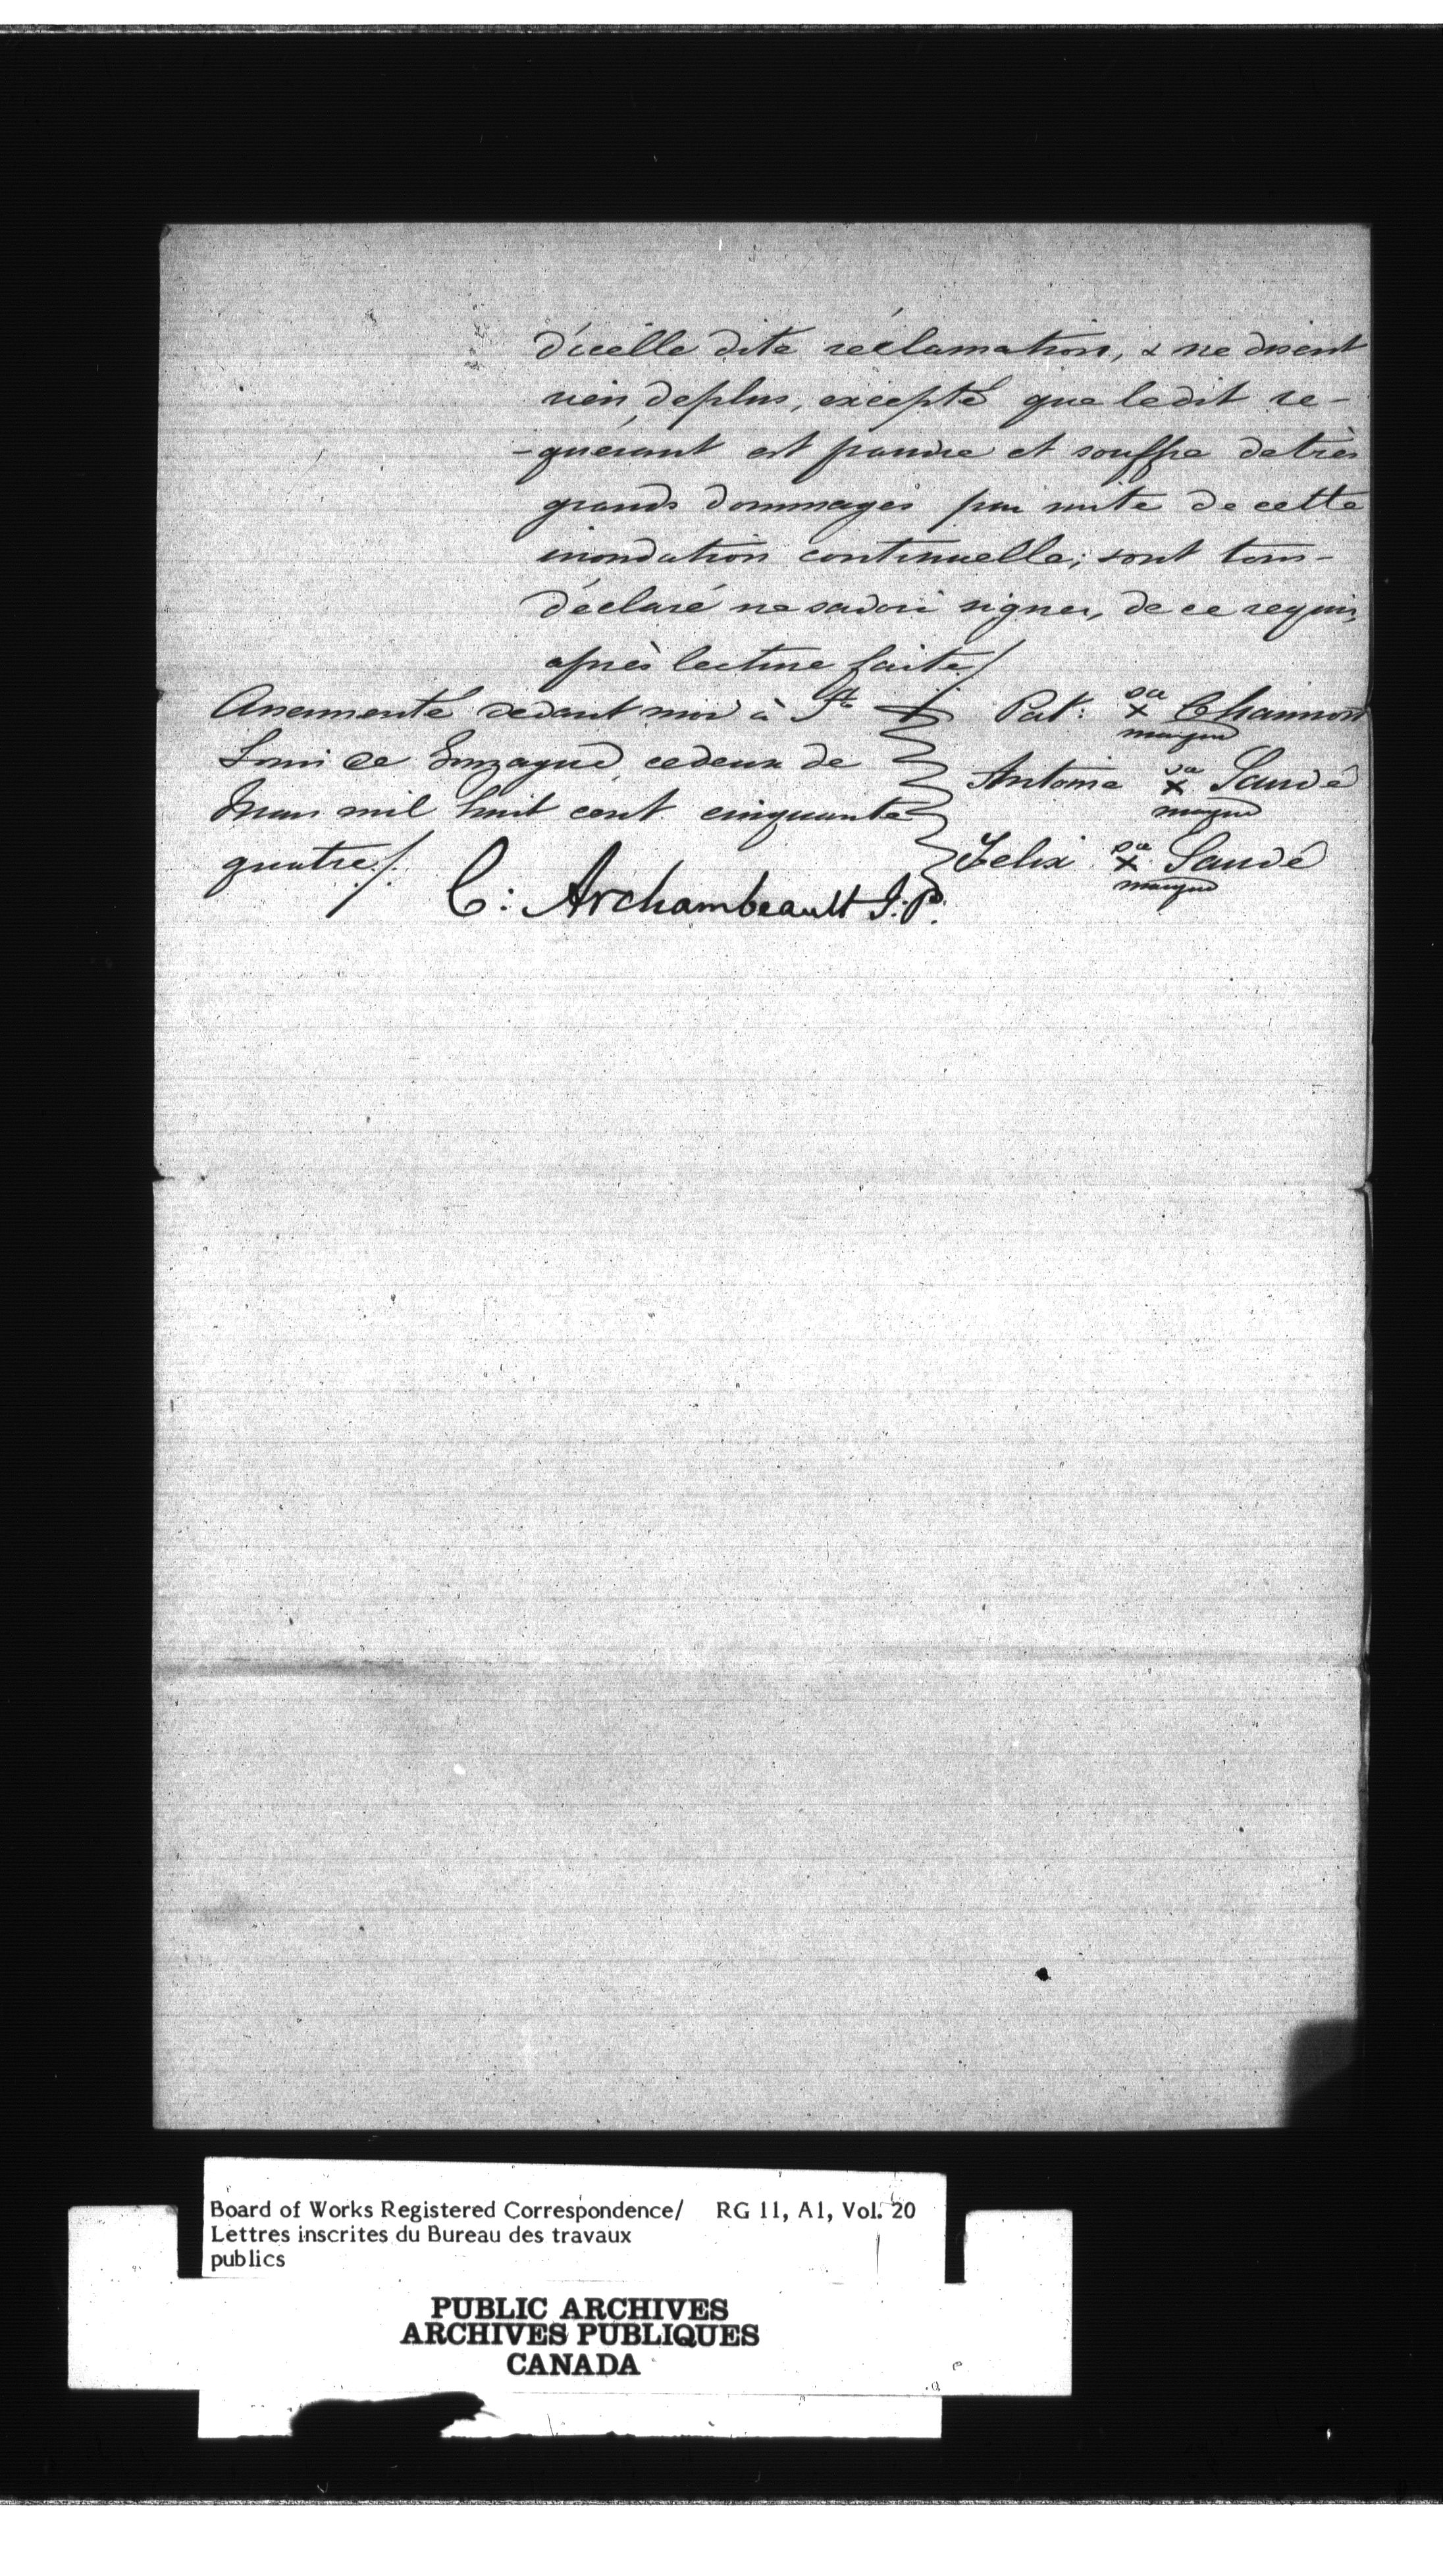 d'icelle dite réclamation, & ne disent
rien de plus, excepté que ledit re-
-quérant est pauvre et souffre de très
grands dommages par suite de cette
inondation continuelle; sont tous-
déclaré ne savoir signer, de ce requis,
après lecture faite/.
Assermenté devant moi à St
Louis de Gonzague, ce deux de
Mars mil huit cent cinquante
quatre/.
C: Archambeault J.P.
Pat: sa x marque
Antoine sa x Sauvé marque
Felix sa x Sauvé marque
Board of Works Registered Correspondence/ RG 11, A1, Vol. 20
Lettres inscrites du Bureau des travaux
publics
PUBLIC ARCHIVES
ARCHIVES PUBLIQUES
CANADA